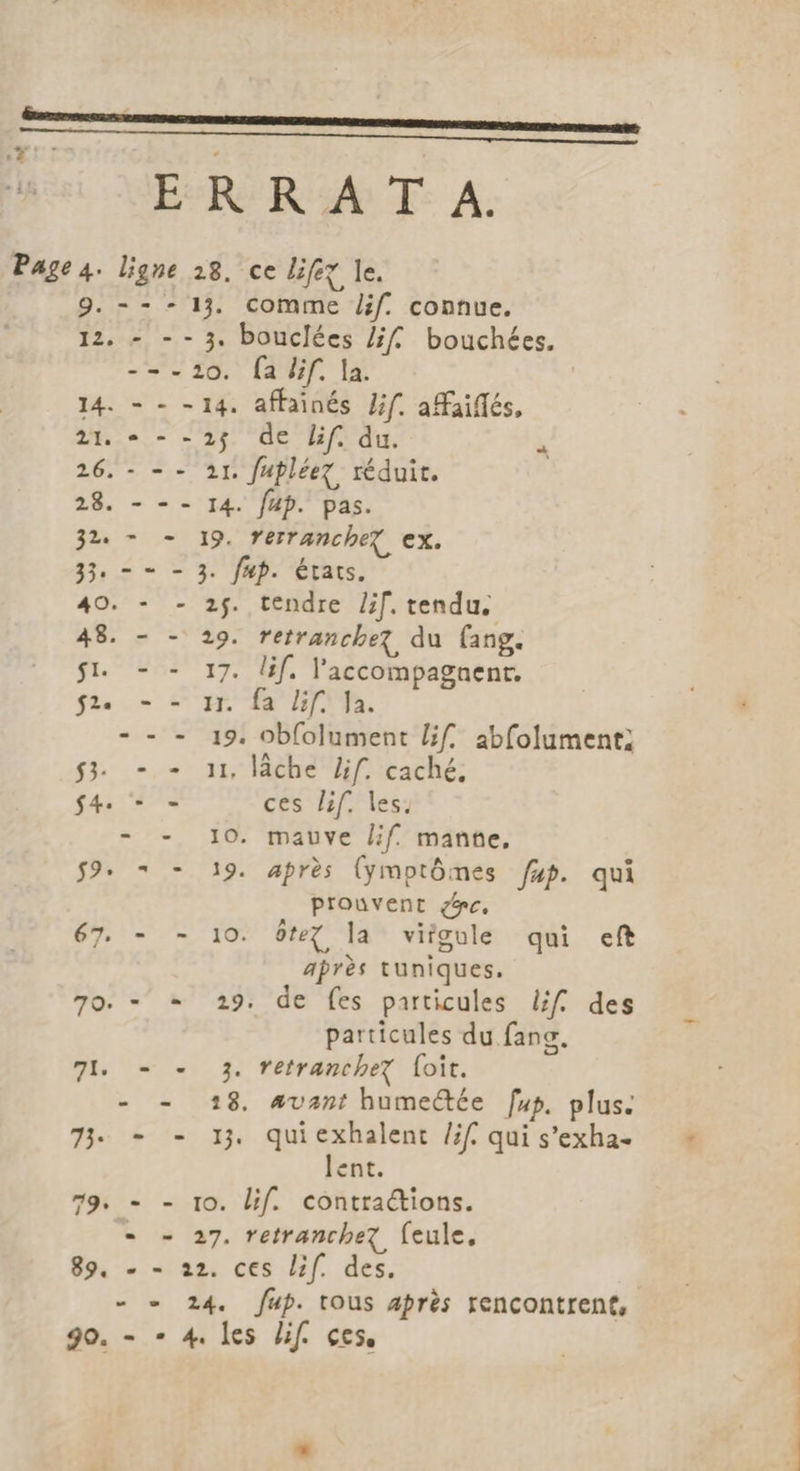 ERRATA.
Page 4. ligne 28. ce liſez le.
9. - - - 13. comme liſ. connue.
12. - - - 3. bouclées liſ. bouchées.
- - - 20. ſa liſ. la.
14. - - - 14. affainés liſ. affaiſſés.
21. - - - 25 de liſ. du.
26. - - - 21. ſupléez réduit.
28. - - - 14. ſup. pas.
32. - - 19. rerranchez ex.
33. - - - 3. ſup. états.
40. - - 25. tendre liſ. tendu.
48. - - 29. retranchez du ſang.
51. - - 17. liſ. l'accompagnent.
52. - - 11. ſa liſ. la.
- - - 19. obſolument liſ. abſolument.
53. - - 11. lâche liſ. caché.
54. - - ces liſ. les.
- - 10. mauve liſ. manne.
59. - - 19. après ſymptômes ſup. qui
prouvent &c.
67. - - 10. ôtez la virgule qui eſt
après tuniques.
70. - - 29. de ſes particules liſ. des
particules du ſang.
71. - - 3. retranchez ſoit.
- - 18. avant humectée ſup. plus.
73. - - 13. qui exhalent liſ. qui s'exha-
lent.
79. - - 10. liſ. contractions.
- - 27. retranchez ſeule.
89. - - 22. ces liſ. des.
- - 24. ſup. tous après rencontrent,
90. - - 4. les liſ. ces.